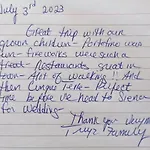 July 3rd 2023
Great trip with our
grown children - Portofino was
fun - fireworks were such a
treat - Restaurants great in
town - Lot of walking!! And
then Cinque Terre - Perfect
time before we head to Siena
for wedding
Thank you very much
Family